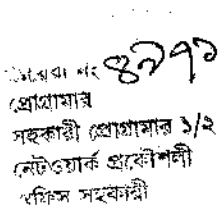 নং ৪৯৭১
প্রোগ্রামার
সহকারী প্রোগ্রামার ১/২
নেটওয়ার্ক প্রকৌশলী
অফিস সহকারী